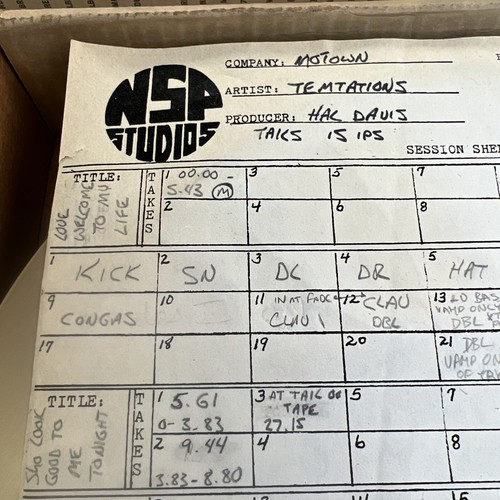 NSP
STUDIOS
COMPANY: MOTOWN
ARTIST: TEMTATIONS
PRODUCER: HAL DAVIS
15 IPS
SESSION SHE
TITLE:
LOVE
WELCOME
TO MY
LIFE
TAKES
1 00.00 -
5.43 (M)
3
5
7
2
4
6
8
1 KICK
2 SN
3
4 DR
5 HAT
9 CONGAS
10
11 IN AT FADE
CLAV 1
12 CLAV
DBL
13
VAMP ONLY
DBL
17
18
19
20
21 DBL
VAMP ON
OF
TITLE:
SHO LOOK
GOOD TO
ME
TONIGHT
TAKES
1 5.61
0-3.83
3 AT TAIL OF
TAPE
27.15
5
7
2 9.44
3.83-8.80
4
6
8